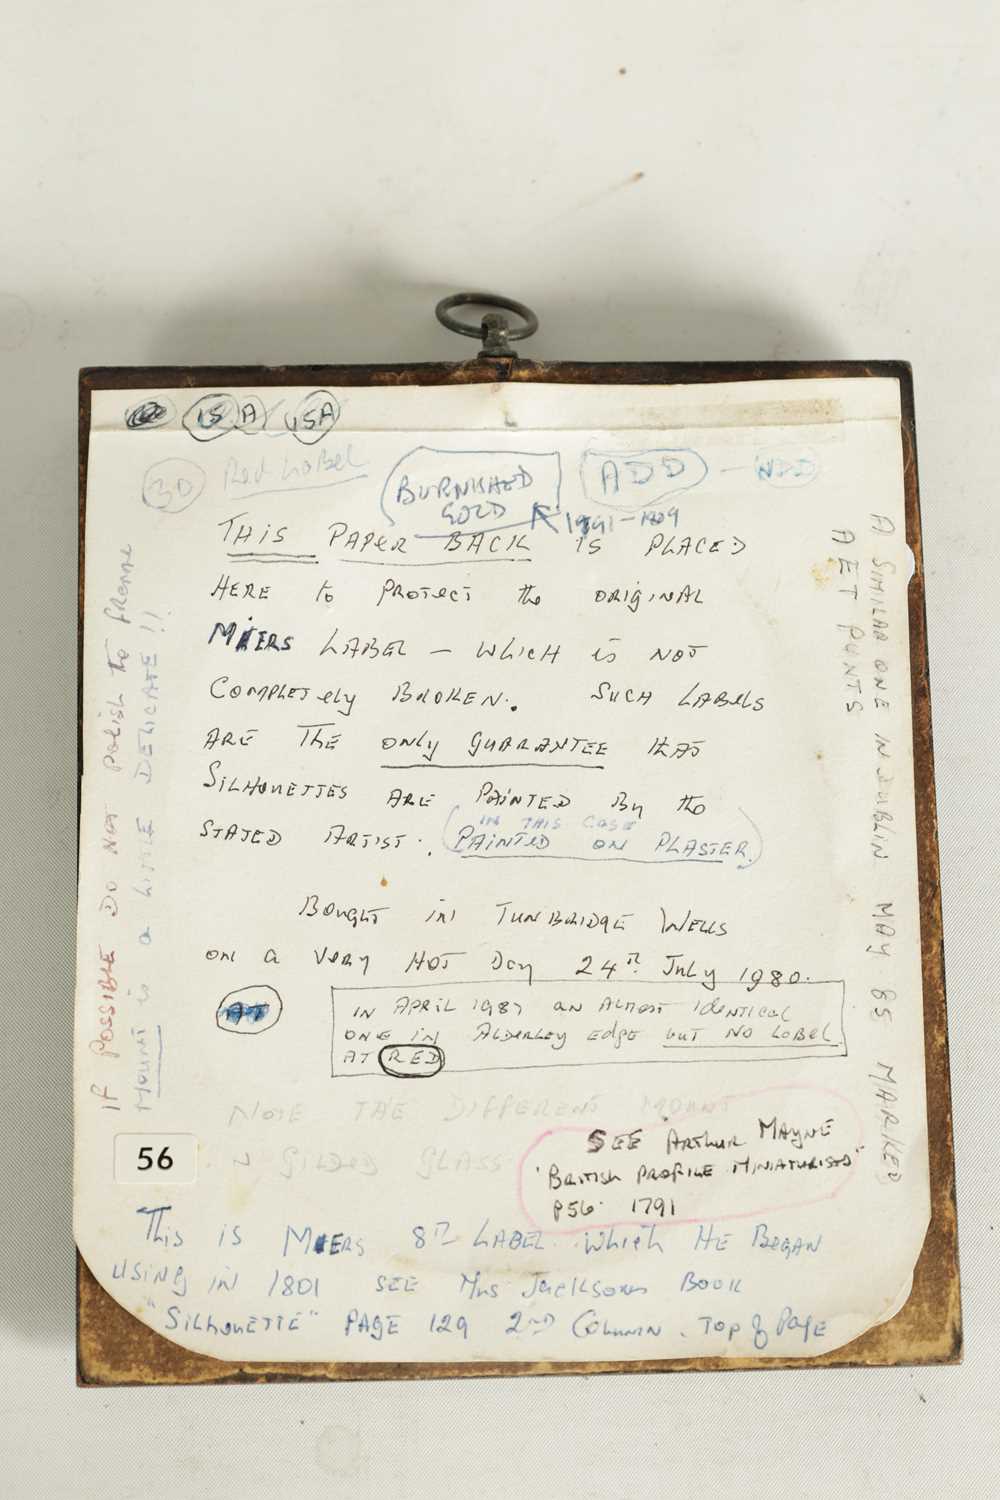 15 A 15A
30 Red Label
BURNISHED
GOLD
ADD - NDD
1791-1809
THIS PAPER BACK IS PLACED
HERE to PROTECT the ORIGINAL
MIERS LABEL - WHICH is NOT
COMPLETely BROKEN. SUCH LABELS
ARE THE only GUARANTEE that
SILHOUETTES ARE PAINTED By the
IN THIS CASE
STATED ARTIST. (PAINTED ON PLASTER.)
BOUGHT IN TUNBRIDGE WELLS
on a Very HOT Day 24th July 1980.
AT
IN APRIL 1987 an ALMOST IDENTICAL
ONE IN ALDERLEY Edge but NO LABEL.
AT RED
NOTE THE DIFFERENT MOUNT
GILDED GLASS
SEE ARTHUR MAYNE
"BRITISH PROFILE MINIATURISTS"
P56. 1791
56
This IS MIERS 8TH LABEL which HE BEGAN
using in 1801 SEE Mrs Jacksons BOOK
"SILhoUETTE" PAGE 129 2ND Column. Top of Page
IF POSSIBLE DO NOT polish the frame
Mount is a LITTLE DELICATE!!
A SIMILAR ONE IN DUBLIN MAY 85 MARKED
AET PUNTS